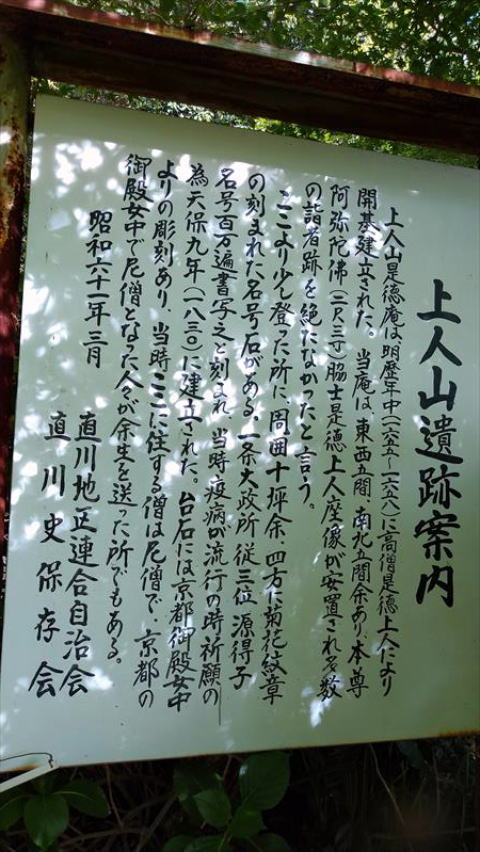 上人山遺跡案内
上人山是徳庵は明歴年中(一六五五〜一六五八)に高僧是徳上人により
開基建立された。当庵は、東西五間、南北五間余あり、本尊
阿弥陀佛(二尺三寸)脇士是徳上人座像が安置され多数
の詣者跡を絶たなかったと言う。
ここより少し登った所に周囲十坪余、四方に菊花紋章
の刻まれた名号石がある。一条大政所従三位源得子
名号百万遍書写之と刻まれ、当時疫病が流行の時祈願の
為天保九年(一八三〇)に建立された。台石には京都御殿女中
よりの彫刻あり、当時ここに住する僧は尼僧で、京都の
御殿女中で尼僧となった人々が余生を送った所でもある。
昭和六十一年三月
直川地区連合自治会
直川史保存会